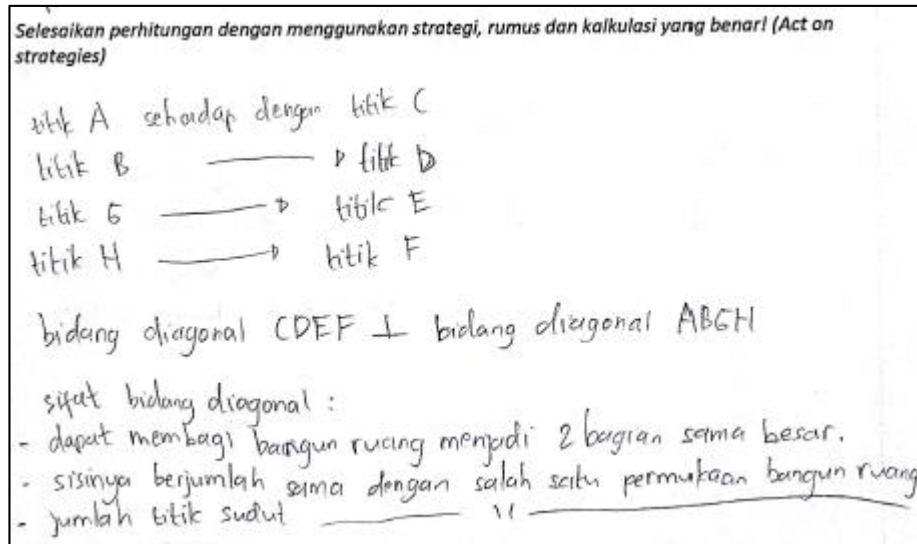 Selesaikan perhitungan dengan menggunakan strategi, rumus dan kalkulasi yang benar! (Act on
strategies)
titik A sehadap dengan titik C
titik B → titik D
titik G → titik E
titik H → titik F
bidang diagonal CDEF ⊥ bidang diagonal ABGH
sifat bidang diagonal :
- dapat membagi bangun ruang menjadi 2 bagian sama besar.
- sisinya berjumlah sama dengan salah satu permukaan bangun ruang
- jumlah titik sudut —— 11 ——